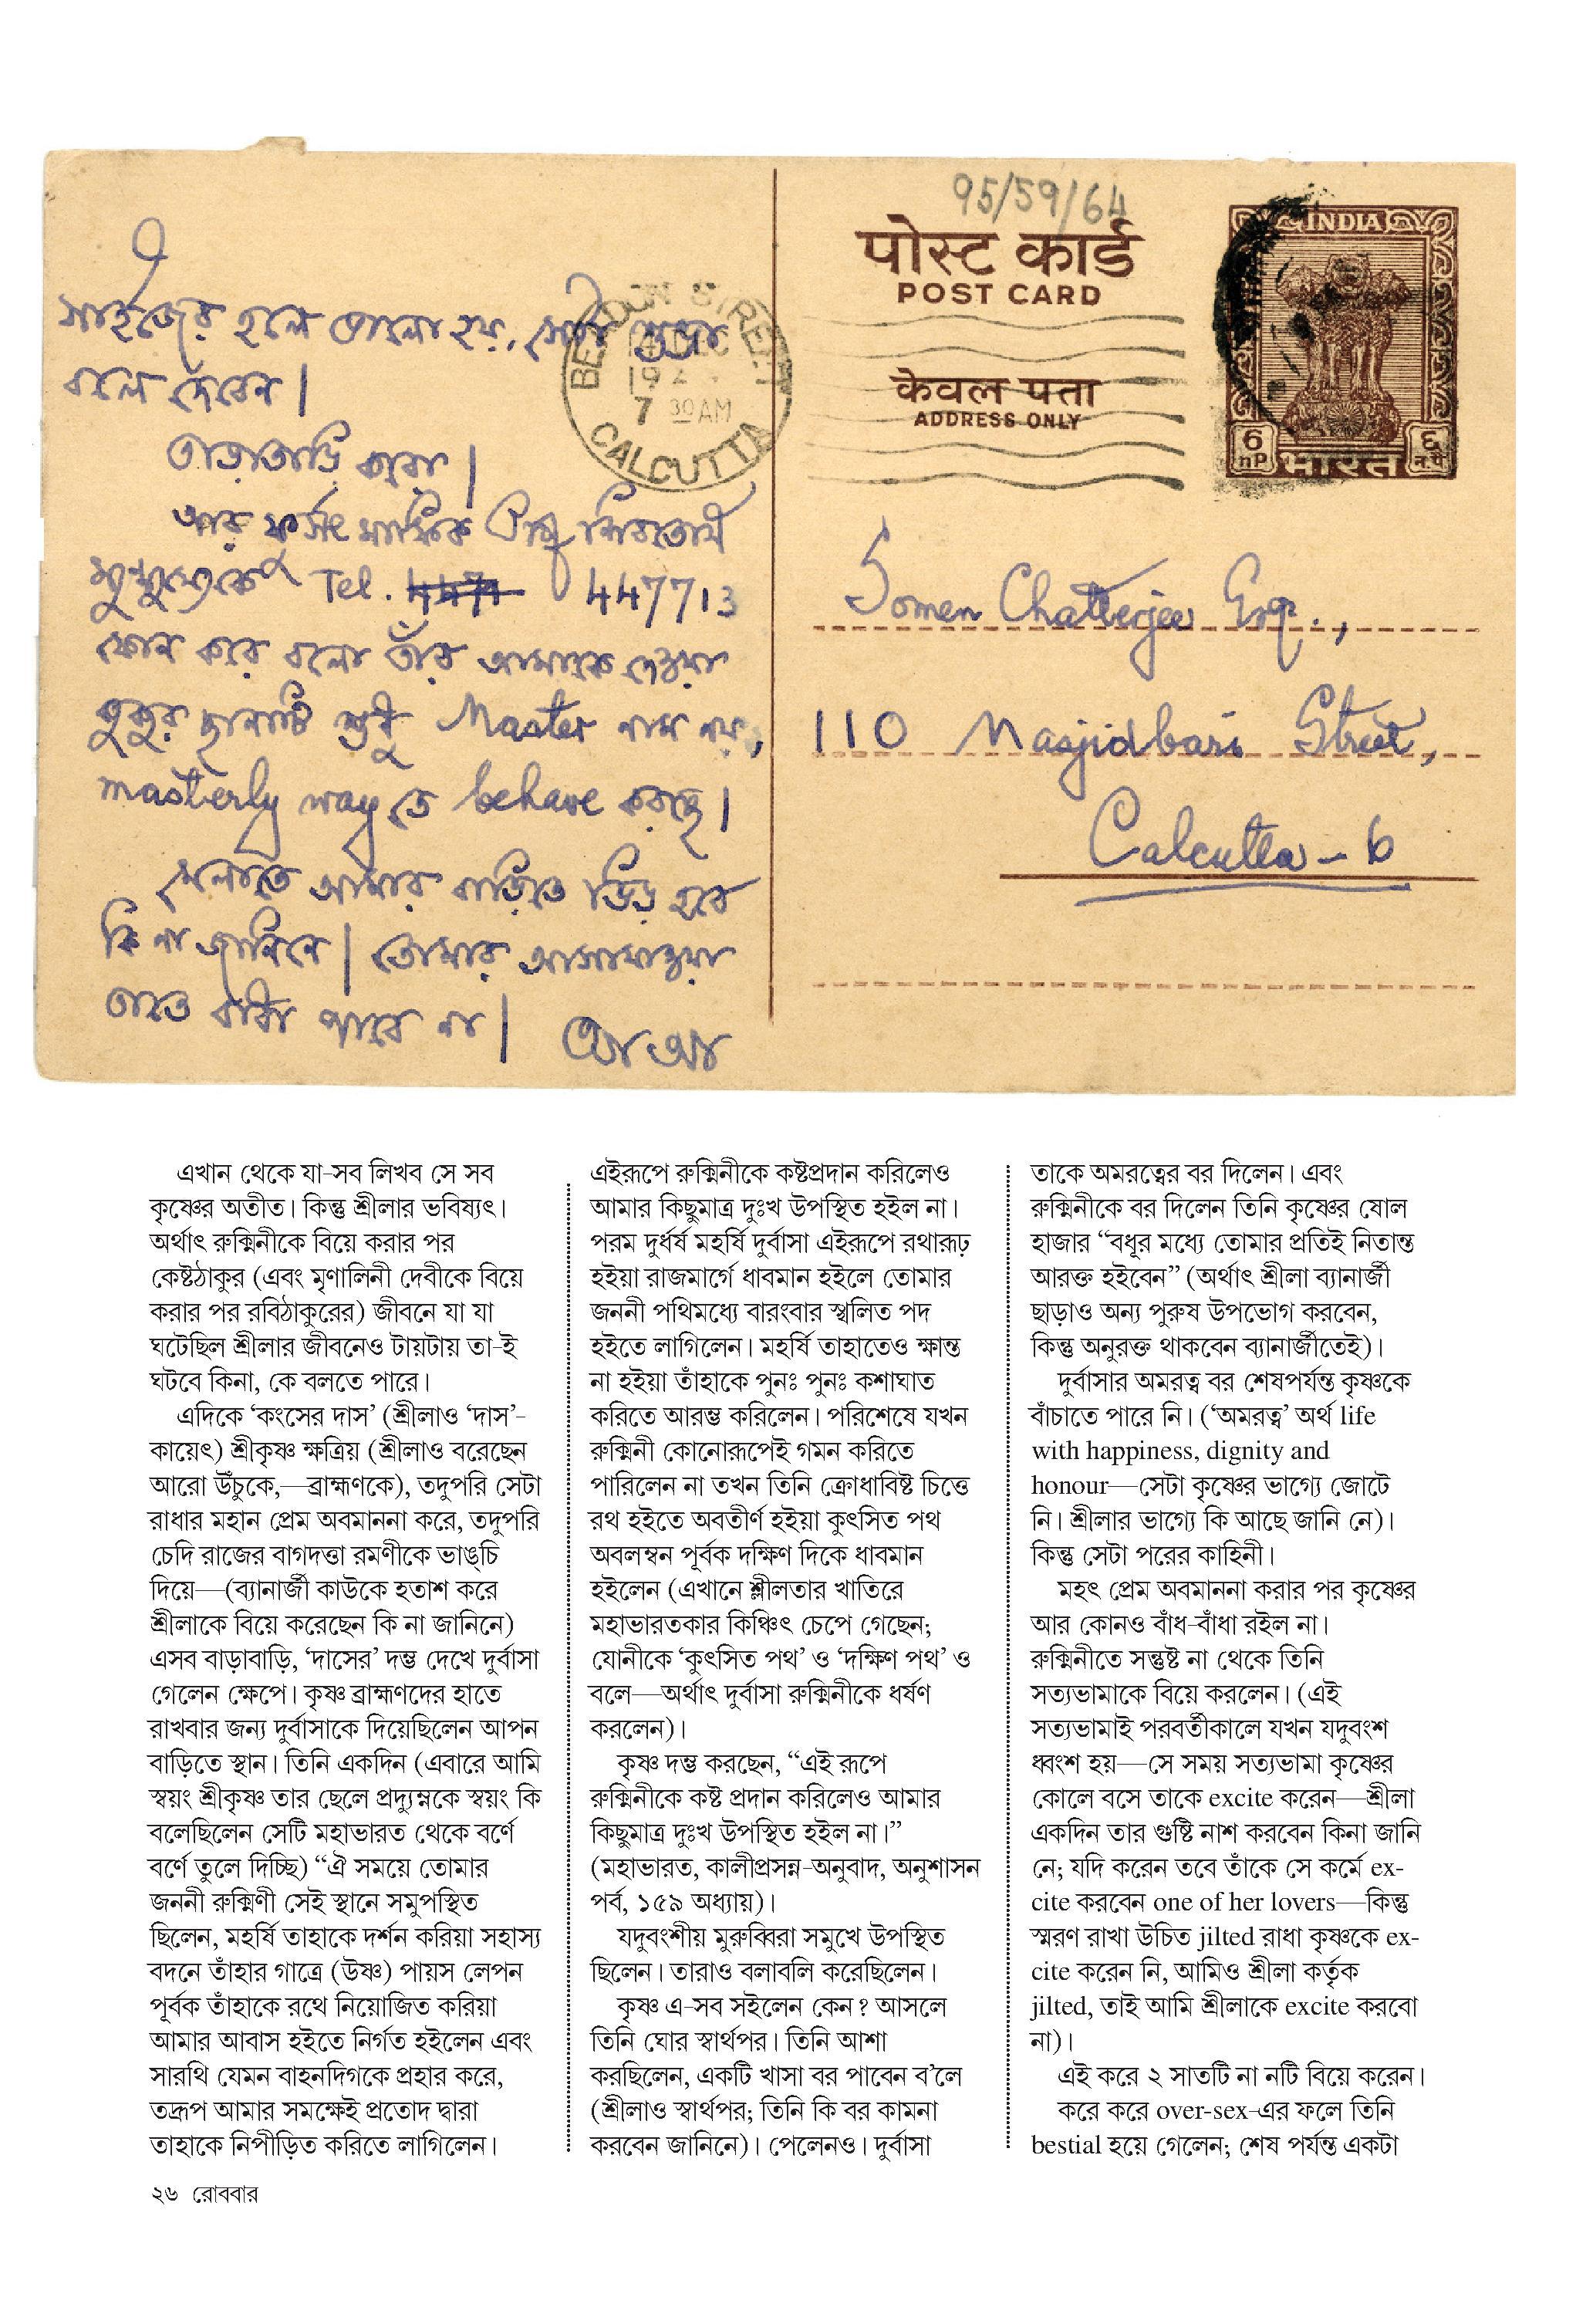 সাইজের হলে ভালো হয়, সেটা শুভ্রা
বলে দেবেন।
তাড়াতাড়ি করো।
আর ফুর্সৎ মাফিক শিবতোষ
মুখুয্যেকে Tel. 447713
ফোন করে বলো তাঁর আমাকে দেওয়া
কুকুর ছানাটি শুধু Master নাম নয়,
masterly wayতে behave করছে।
মেলাতে আমার বাড়িতে ভিড় হবে
কি না জানিনে। তোমার আসাযাওয়া
তাতে বাধা পাবে না।
আ আ
95/59/64
पोस्ट कार्ड
POST CARD
केवल पता
ADDRESS ONLY
INDIA
6 nP भारत ६ न.पै
BEADON STREET
14 DEC
19
7 30 AM
CALCUTTA
Somen Chatterjee Esq.,
110 Masjidbari Street,
Calcutta – 6
এখান থেকে যা-সব লিখব সে সব
কৃষ্ণের অতীত। কিন্তু শ্রীলার ভবিষ্যৎ।
অর্থাৎ রুক্মিনীকে বিয়ে করার পর
কেষ্টঠাকুর (এবং মৃণালিনী দেবীকে বিয়ে
করার পর রবিঠাকুরের) জীবনে যা যা
ঘটেছিল শ্রীলার জীবনেও টায়টায় তা-ই
ঘটবে কিনা, কে বলতে পারে।
এদিকে ‘কংসের দাস’ (শ্রীলাও ‘দাস’-
কায়েৎ) শ্রীকৃষ্ণ ক্ষত্রিয় (শ্রীলাও বরেছেন
আরো উঁচুকে,—ব্রাহ্মণকে), তদুপরি সেটা
রাধার মহান প্রেম অবমাননা করে, তদুপরি
চেদি রাজের বাগদত্তা রমণীকে ভাঙ্চি
দিয়ে—(ব্যানার্জী কাউকে হতাশ করে
শ্রীলাকে বিয়ে করেছেন কি না জানিনে)
এসব বাড়াবাড়ি, ‘দাসের’ দম্ভ দেখে দুর্বাসা
গেলেন ক্ষেপে। কৃষ্ণ ব্রাহ্মণদের হাতে
রাখবার জন্য দুর্বাসাকে দিয়েছিলেন আপন
বাড়িতে স্থান। তিনি একদিন (এবারে আমি
স্বয়ং শ্রীকৃষ্ণ তার ছেলে প্রদ্যুম্নকে স্বয়ং কি
বলেছিলেন সেটি মহাভারত থেকে বর্ণে
বর্ণে তুলে দিচ্ছি) “ঐ সময়ে তোমার
জননী রুক্মিণী সেই স্থানে সমুপস্থিত
ছিলেন, মহর্ষি তাহাকে দর্শন করিয়া সহাস্য
বদনে তাঁহার গাত্রে (উষ্ণ) পায়স লেপন
পূর্বক তাঁহাকে রথে নিয়োজিত করিয়া
আমার আবাস হইতে নির্গত হইলেন এবং
সারথি যেমন বাহনদিগকে প্রহার করে,
তদ্রূপ আমার সমক্ষেই প্রতোদ দ্বারা
তাহাকে নিপীড়িত করিতে লাগিলেন।
এইরূপে রুক্মিনীকে কষ্টপ্রদান করিলেও
আমার কিছুমাত্র দুঃখ উপস্থিত হইল না।
পরম দুর্ধর্ষ মহর্ষি দুর্বাসা এইরূপে রথারূঢ়
হইয়া রাজমার্গে ধাবমান হইলে তোমার
জননী পথিমধ্যে বারংবার স্খলিত পদ
হইতে লাগিলেন। মহর্ষি তাহাতেও ক্ষান্ত
না হইয়া তাঁহাকে পুনঃ পুনঃ কশাঘাত
করিতে আরম্ভ করিলেন। পরিশেষে যখন
রুক্মিনী কোনোরূপেই গমন করিতে
পারিলেন না তখন তিনি ক্রোধাবিষ্ট চিত্তে
রথ হইতে অবতীর্ণ হইয়া কুৎসিত পথ
অবলম্বন পূর্বক দক্ষিণ দিকে ধাবমান
হইলেন (এখানে শ্লীলতার খাতিরে
মহাভারতকার কিঞ্চিৎ চেপে গেছেন;
যোনীকে ‘কুৎসিত পথ’ ও ‘দক্ষিণ পথ’ ও
বলে—অর্থাৎ দুর্বাসা রুক্মিনীকে ধর্ষণ
করলেন)।
কৃষ্ণ দম্ভ করছেন, “এই রূপে
রুক্মিনীকে কষ্ট প্রদান করিলেও আমার
কিছুমাত্র দুঃখ উপস্থিত হইল না।”
(মহাভারত, কালীপ্রসন্ন-অনুবাদ, অনুশাসন
পর্ব, ১৫৯ অধ্যায়)।
যদুবংশীয় মুরুব্বিরা সমুখে উপস্থিত
ছিলেন। তারাও বলাবলি করেছিলেন।
কৃষ্ণ এ-সব সইলেন কেন? আসলে
তিনি ঘোর স্বার্থপর। তিনি আশা
করছিলেন, একটি খাসা বর পাবেন ব’লে
(শ্রীলাও স্বার্থপর; তিনি কি বর কামনা
করবেন জানিনে)। পেলেনও। দুর্বাসা
তাকে অমরত্বের বর দিলেন। এবং
রুক্মিনীকে বর দিলেন তিনি কৃষ্ণের ষোল
হাজার “বধূর মধ্যে তোমার প্রতিই নিতান্ত
আরক্ত হইবেন” (অর্থাৎ শ্রীলা ব্যানার্জী
ছাড়াও অন্য পুরুষ উপভোগ করবেন,
কিন্তু অনুরক্ত থাকবেন ব্যানার্জীতেই)।
দুর্বাসার অমরত্ব বর শেষপর্যন্ত কৃষ্ণকে
বাঁচাতে পারে নি। (‘অমরত্ব’ অর্থ life
with happiness, dignity and
honour—সেটা কৃষ্ণের ভাগ্যে জোটে
নি। শ্রীলার ভাগ্যে কি আছে জানি নে)।
কিন্তু সেটা পরের কাহিনী।
মহৎ প্রেম অবমাননা করার পর কৃষ্ণের
আর কোনও বাঁধ-বাঁধা রইল না।
রুক্মিনীতে সন্তুষ্ট না থেকে তিনি
সত্যভামাকে বিয়ে করলেন। (এই
সত্যভামাই পরবর্তীকালে যখন যদুবংশ
ধ্বংশ হয়—সে সময় সত্যভামা কৃষ্ণের
কোলে বসে তাকে excite করেন—শ্রীলা
একদিন তার গুষ্টি নাশ করবেন কিনা জানি
নে; যদি করেন তবে তাঁকে সে কর্মে ex-
cite করবেন one of her lovers—কিন্তু
স্মরণ রাখা উচিত jilted রাধা কৃষ্ণকে ex-
cite করেন নি, আমিও শ্রীলা কর্তৃক
jilted, তাই আমি শ্রীলাকে excite করবো
না)।
এই করে ২ সাতটি না নটি বিয়ে করেন।
করে করে over-sex-এর ফলে তিনি
bestial হয়ে গেলেন; শেষ পর্যন্ত একটা
২৬ রোববার